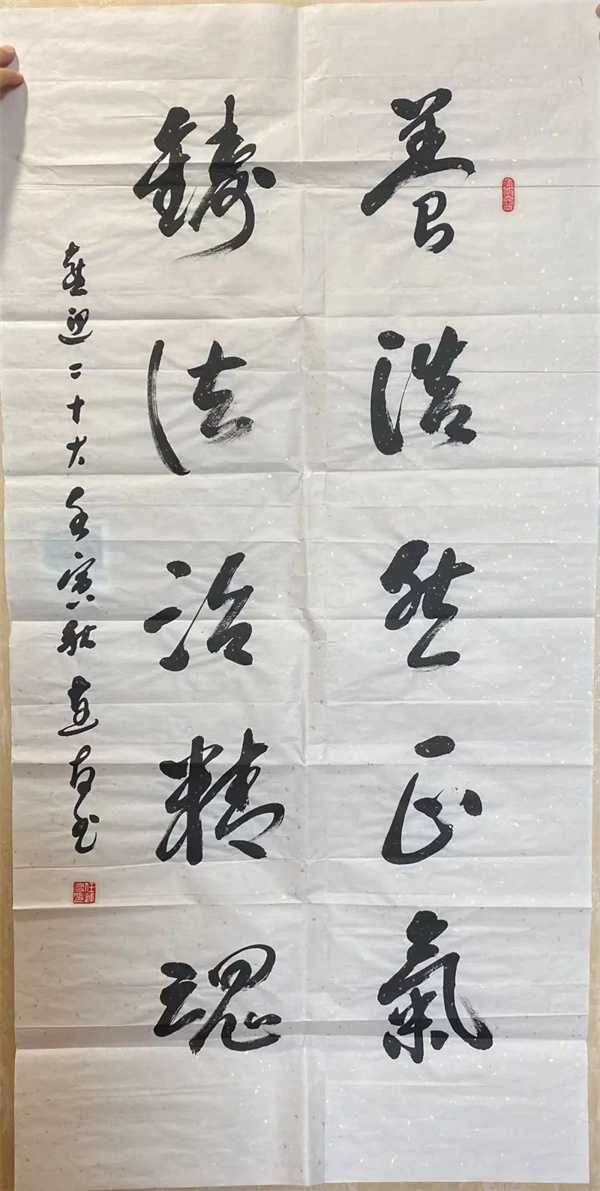 养浩然正氣
鑄法治精魂
喜迎二十大壬寅秋建友书